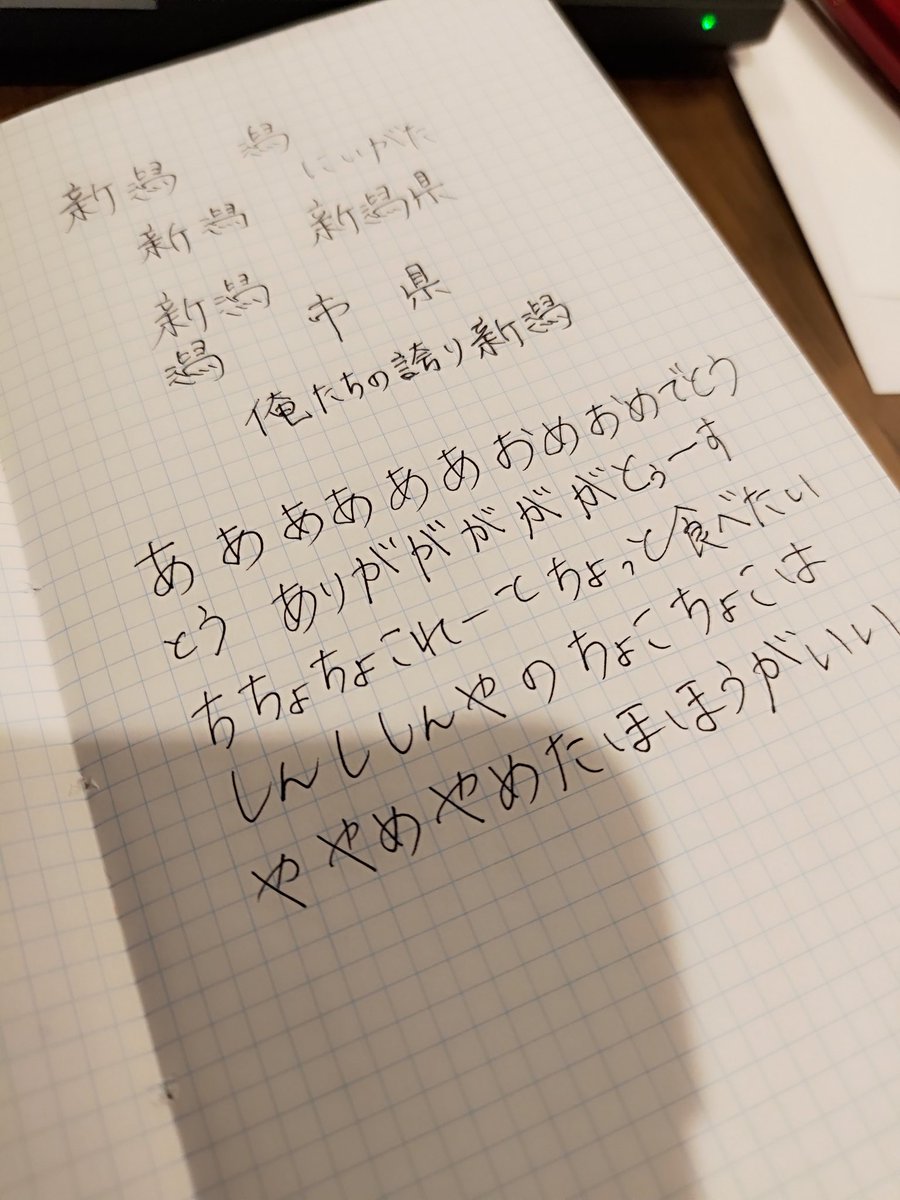 新潟 潟 にいがた
新潟 新潟県
新潟 市 県
潟
俺たちの誇り新潟
ああああああおめおめでとう
とう ありがががががとぅーす
ちちょちょこれーとちょっと食べたい
しんししんやのちょこちょこは
ややめやめたほほうがいい